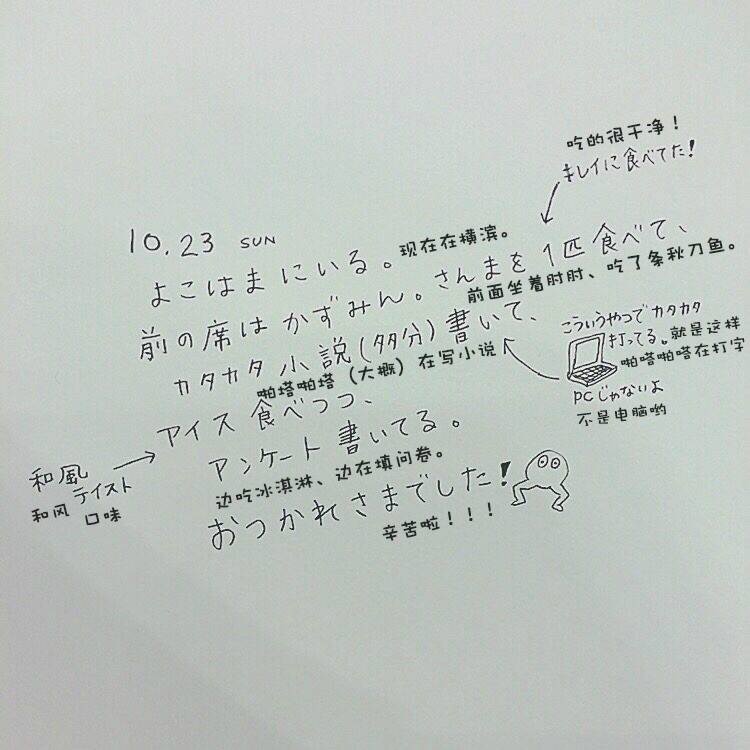 吃的很干净！
キレイに食べてた！
10.23 SUN
よこはまにいる。
现在在横滨。
前の席はかずみん。さんまを1匹食べて、
前面坐着肘肘、吃了条秋刀鱼。
カタカタ小説(多分)書いて、
啪塔啪塔（大概）在写小说
こういうやつでカタカタ
打ってる。
就是这样
啪嗒啪嗒在打字
PCじゃないよ
不是电脑哟
アイス食べつつ、
アンケート書いてる。
边吃冰淇淋、边在填问卷。
和風
テイスト
和风
口味
おつかれさまでした！
辛苦啦！！！